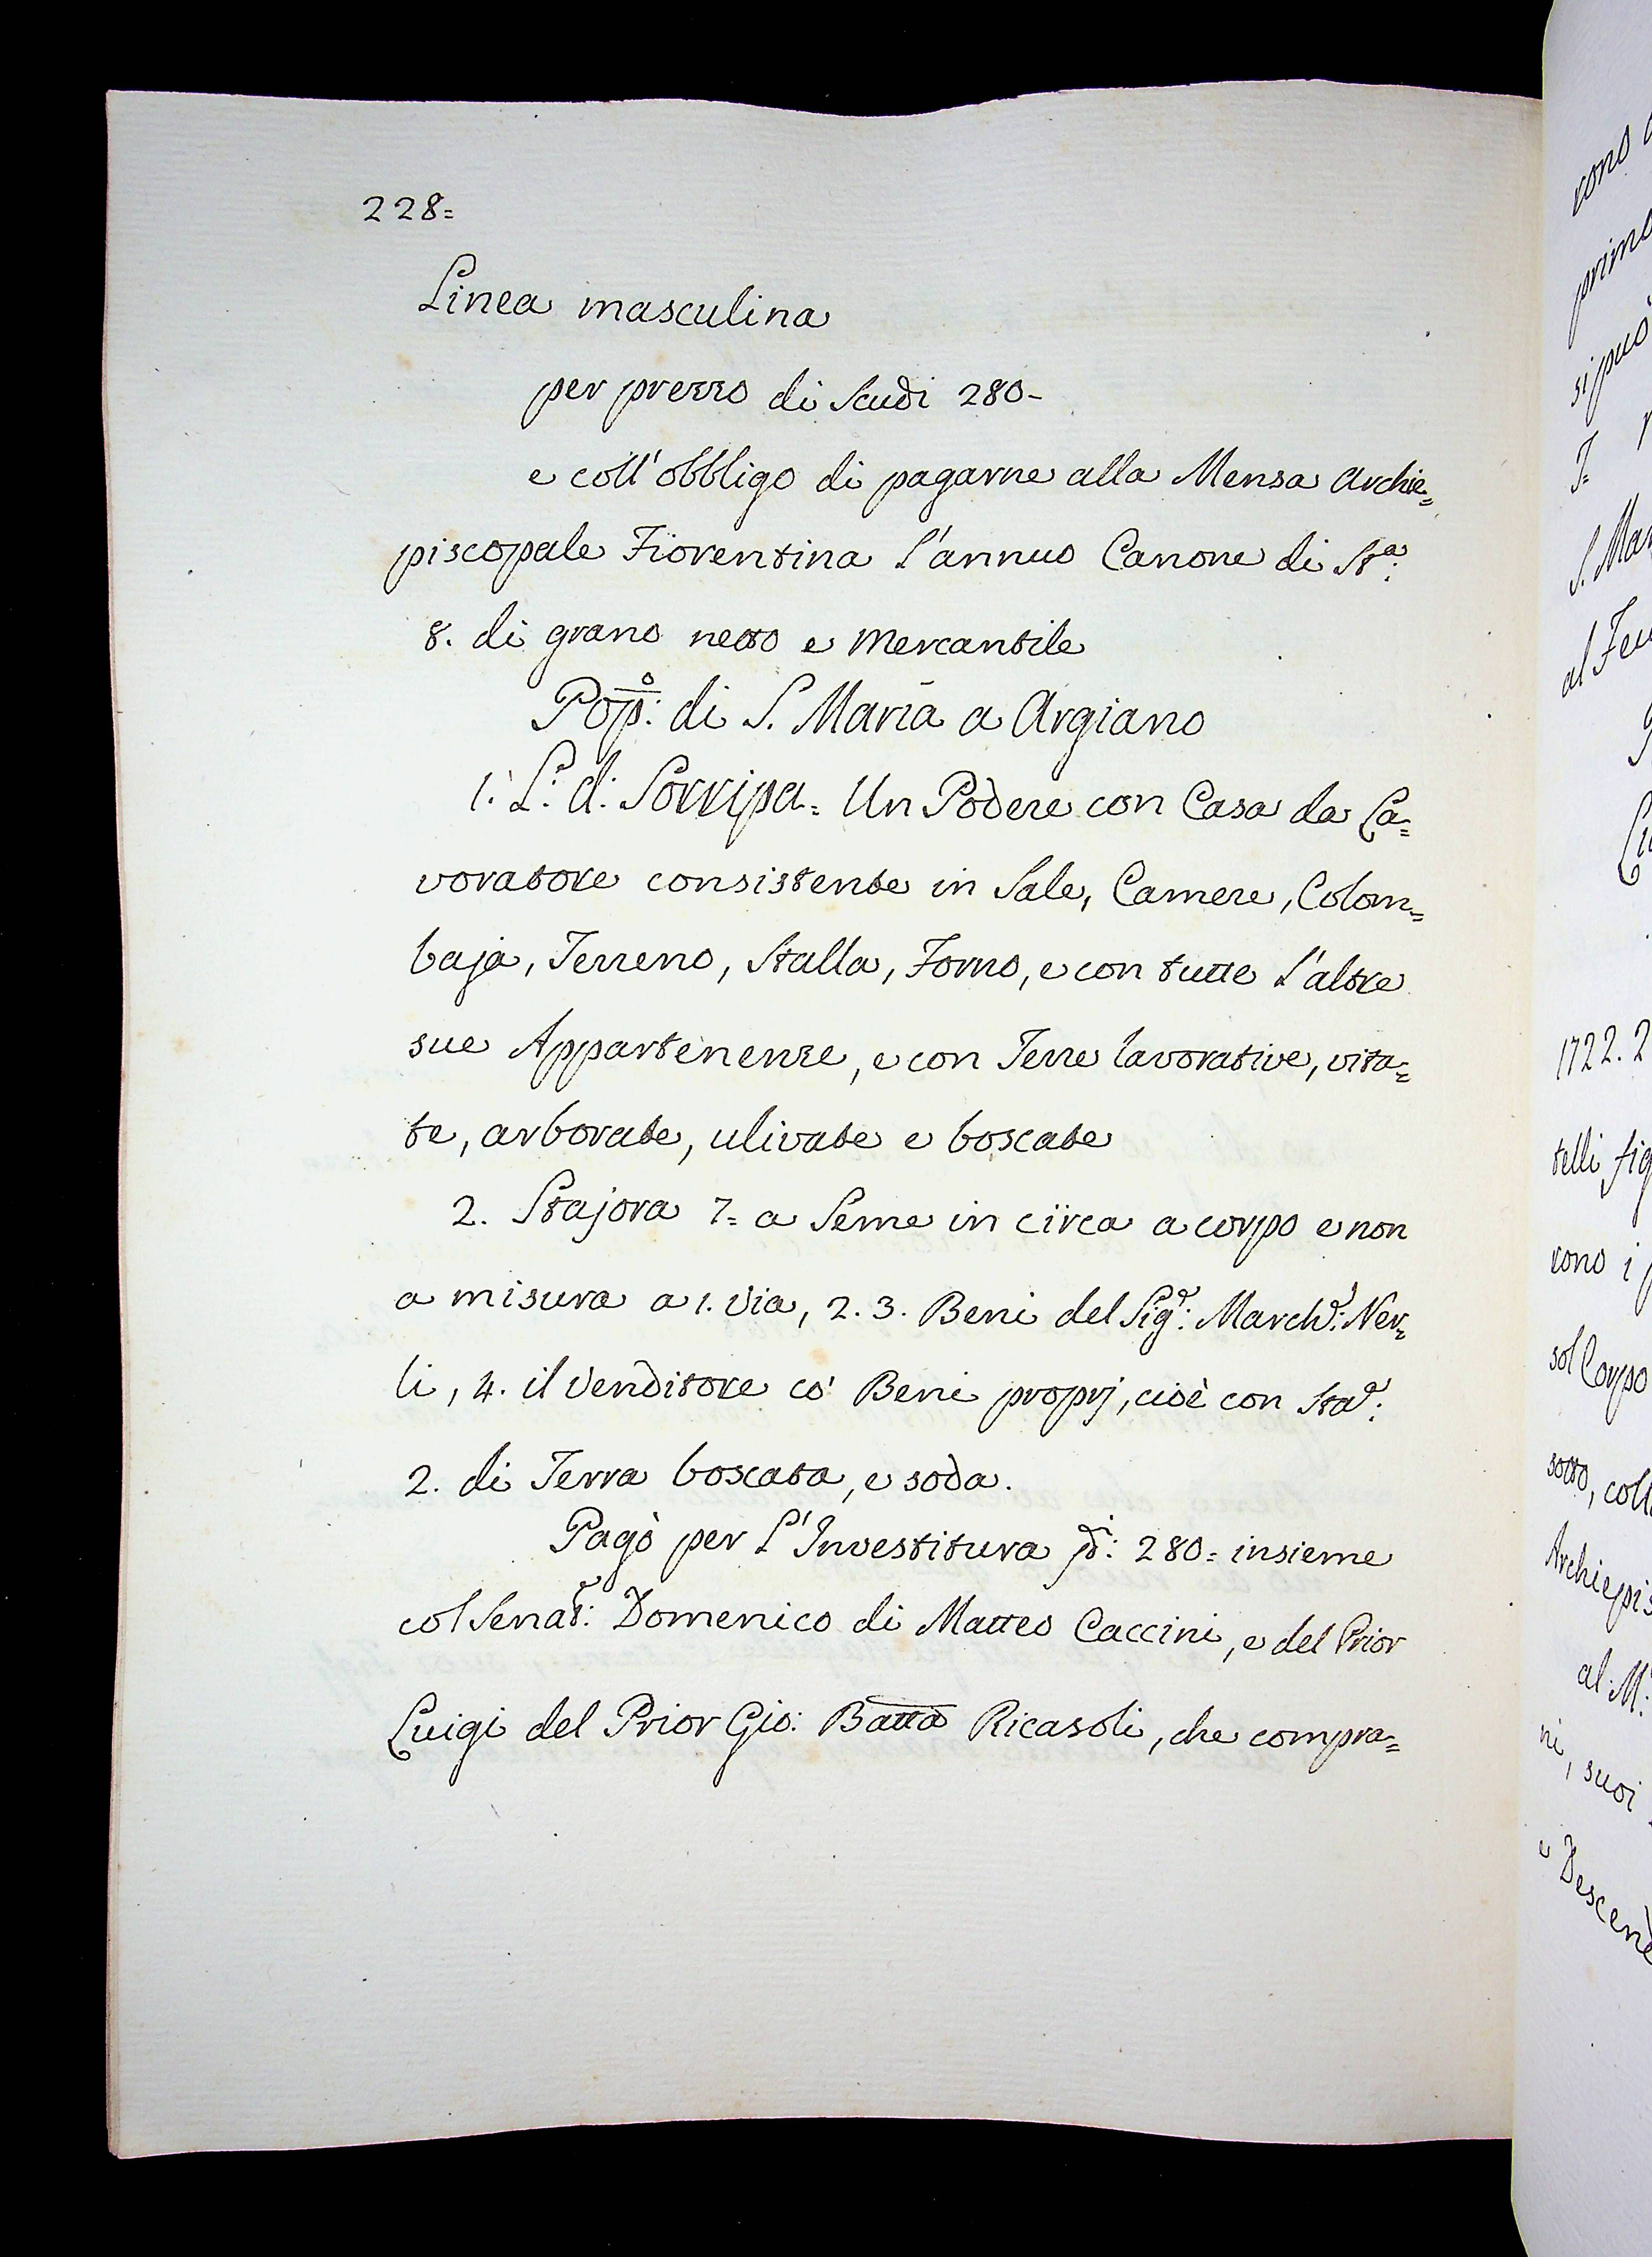 228=
Linea masculina
per prezzo di Scudi 280-
e coll'obbligo di pagarne alla Mensa Archie=
piscopale Fiorentina l'annuo Canone di St.ª:
8. di grano netto e mercantile
Pop.º: di S. Maria a Argiano
1. L.º: d.º: Sorripa = Un Podere con Casa da La=
voratore consistente in Sale, Camere, Colom=
baja, Terreno, Stalla, Forno, e con tutte l'altre
sue Appartenenze, e con Terre lavorative, vita=
te, arborate, ulivate e boscate
2. Stajora 7= a Seme in circa a corpo e non
a misura a 1. Via, 2. 3. Beni del Sig.e: March.e: Ner=
li, 4. il Venditore co' Beni proprj, cioè con Sta.a:
2. di Terra boscata, e soda.
Pagò per l'Investitura 280= insieme
col Senat.e: Domenico di Matteo Caccini, e del Prior
Luigi del Prior Gio: Batta Ricasoli, che compra=
cono
prim
si può
S. Mar
al Feu
1722. 2
telli fig
rono i p
sol Corpo
sotto, coll
Archiepis
al: M:
ni, suoi
e Descend